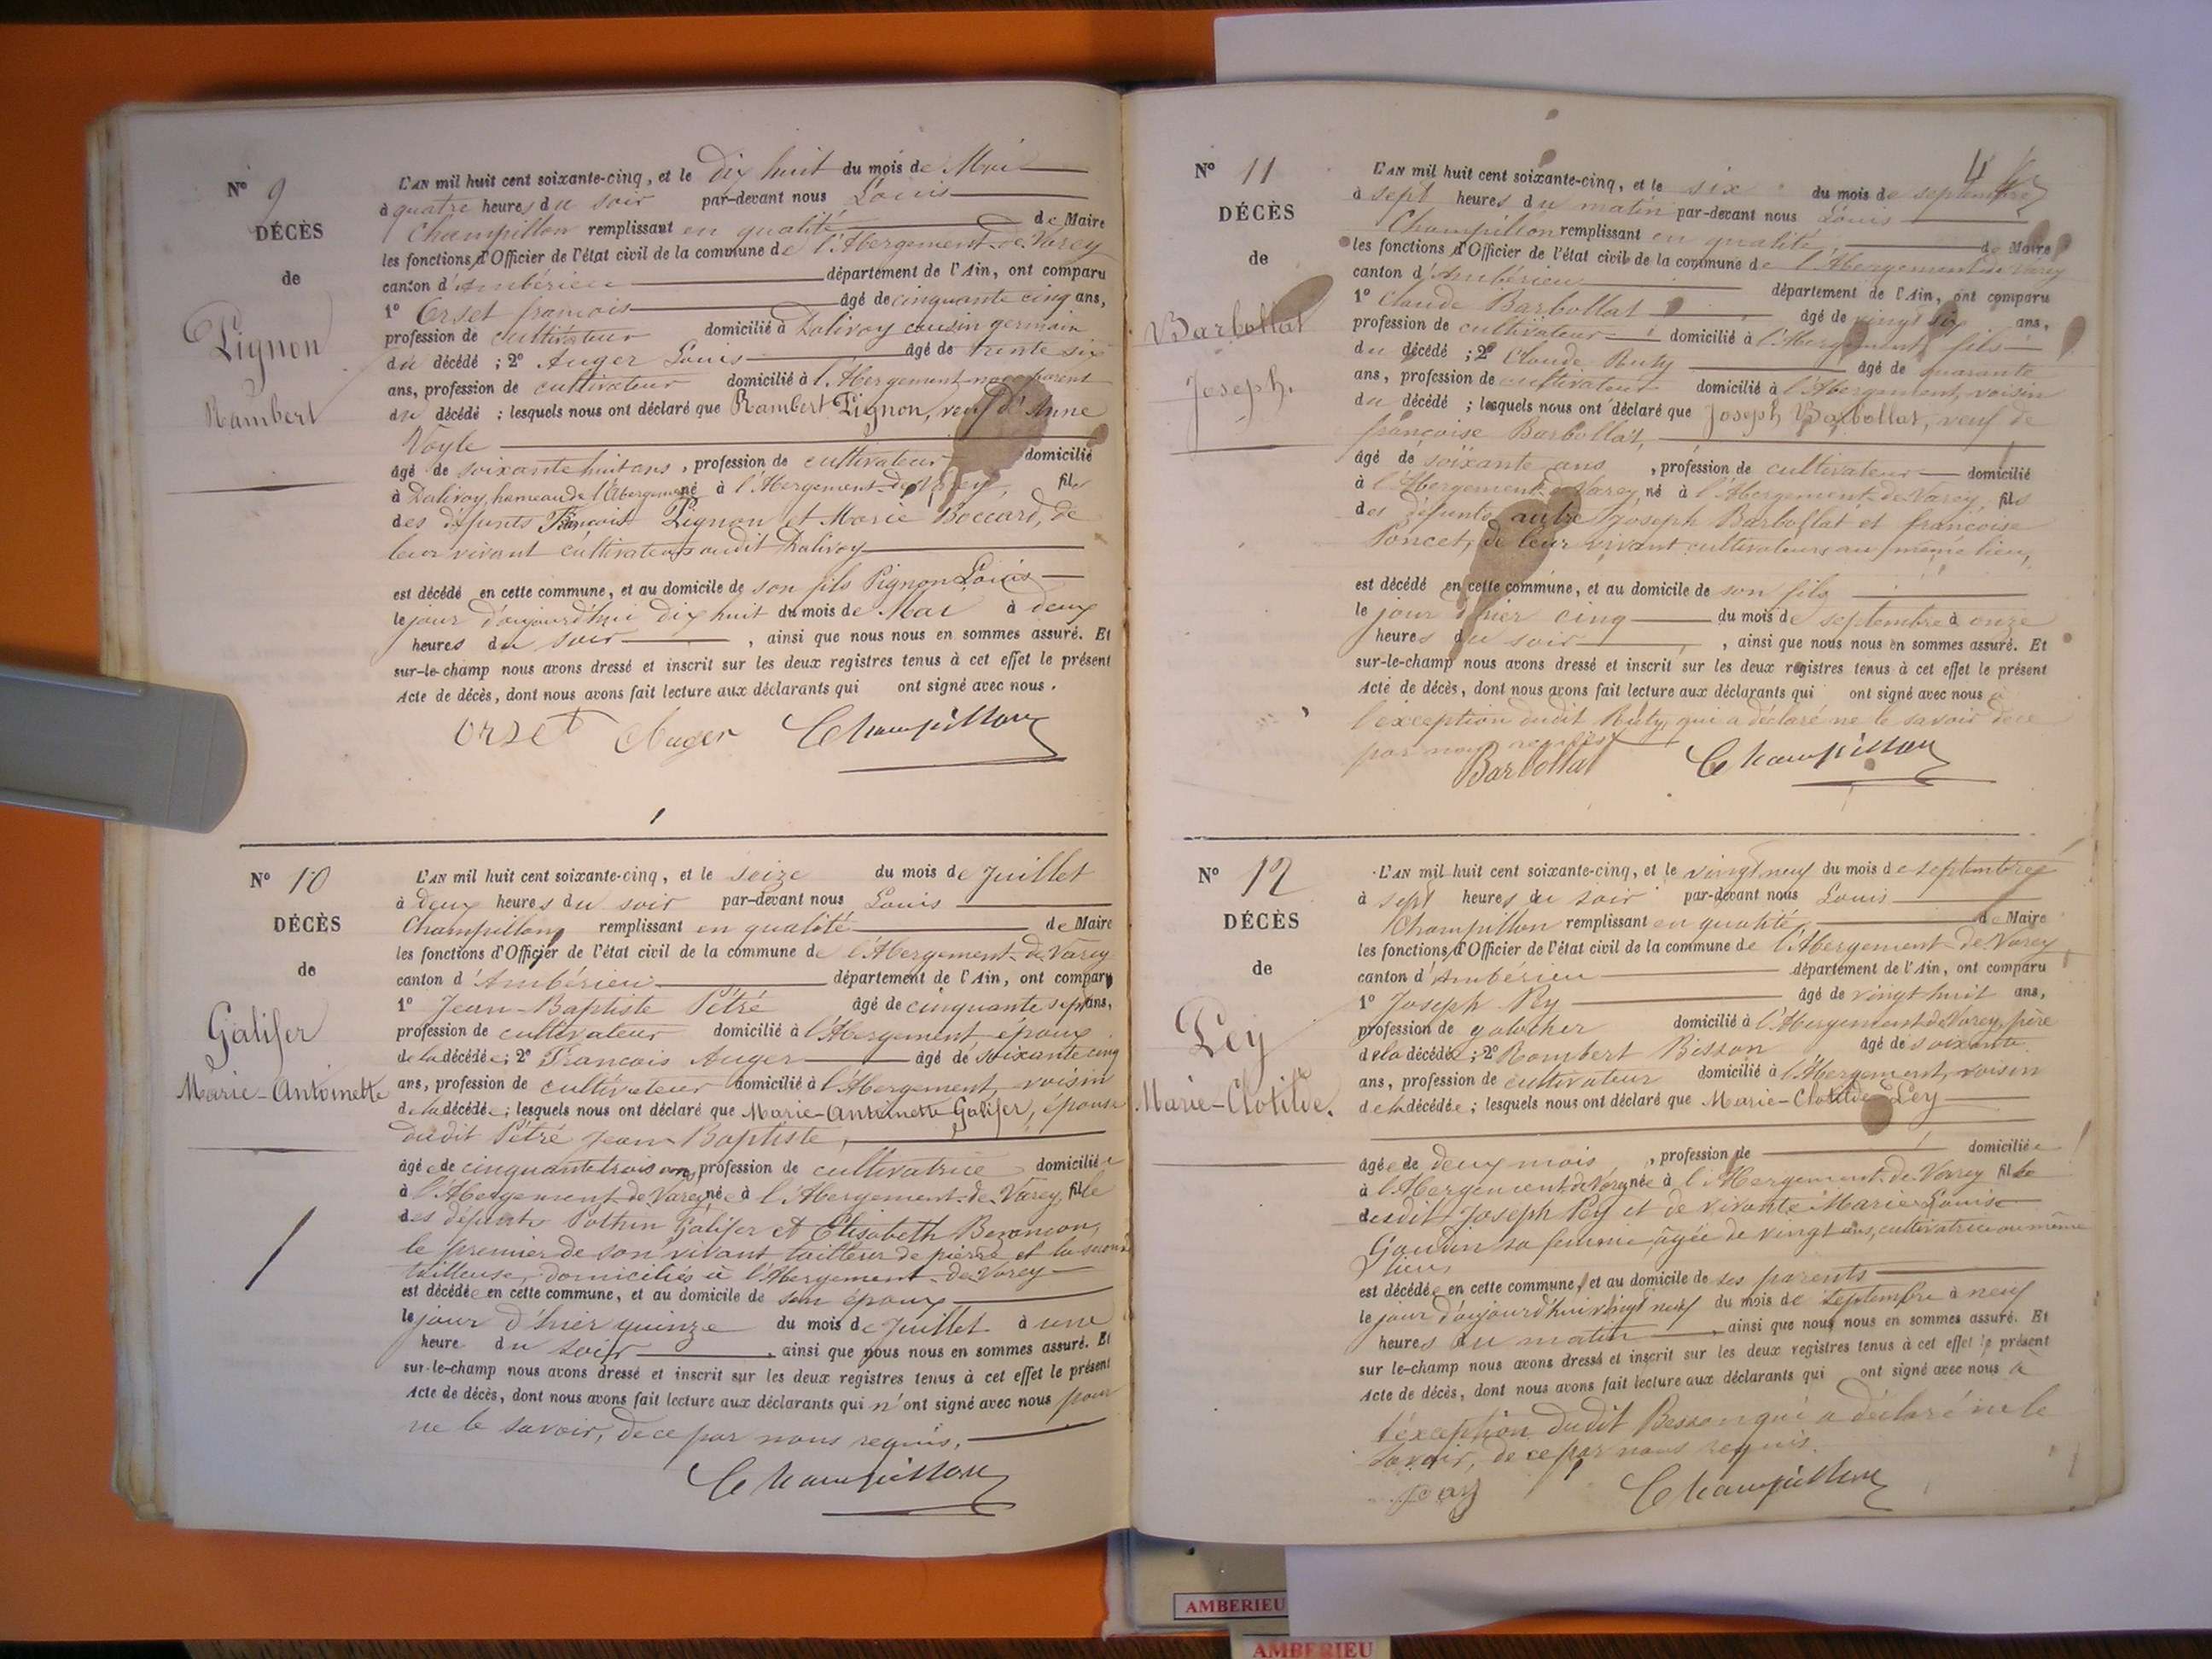 N° 9
DÉCÈS
de
Pignon
Rambert
L'AN mil huit cent soixante-cinq, et le dix huit du mois de Mai
à quatre heures du soir par-devant nous Louis
Champillon remplissant en qualité de Maire
les fonctions d'Officier de l'état civil de la commune de l'Abergement-de-Varey
canton d'Ambérieu département de l'Ain, ont comparu
1° Orset francois âgé de cinquante cinq ans,
profession de cultivateur domicilié à Dalivoy cousin germain
du décédé ; 2° Auger Louis âgé de trente six
ans, profession de cultivateur domicilié à l'Abergement non parent
du décédé ; lesquels nous ont déclaré que Rambert Pignon, veuf d'Anne
Voyle
âgé de soixante huit ans, profession de cultivateur domicilié
à Dalivoy, hameau de l'Abergement né à l'Abergement-de-Varey, fils
des défunts François Pignon et Marie Boccard, de
leur vivant cultivateurs audit Dalivoy
est décédé en cette commune, et au domicile de son fils Pignon Louis
le jour d'aujourd'hui dix huit du mois de Mai à deux
heures du soir, ainsi que nous nous en sommes assuré. Et
sur-le-champ nous avons dressé et inscrit sur les deux registres tenus à cet effet le présent
Acte de décès, dont nous avons fait lecture aux déclarants qui ont signé avec nous.
Orset Auger Champillon
N° 10
DÉCÈS
de
Galifer
Marie-Antoinette
L'AN mil huit cent soixante-cinq, et le seize du mois de Juillet
à deux heures du soir par-devant nous Louis
Champillon remplissant en qualité de Maire
les fonctions d'Officier de l'état civil de la commune de l'Abergement-de-Varey
canton d'Ambérieu département de l'Ain, ont comparu
1° Jean-Baptiste Pétré âgé de cinquante sept ans,
profession de cultivateur domicilié à l'Abergement époux
de la décédée ; 2° Francois Auger âgé de soixante cinq
ans, profession de cultivateur domicilié à l'Abergement, voisin
de la décédée ; lesquels nous ont déclaré que Marie-Antoinette Galifer, épouse
dudit Pétré Jean-Baptiste,
âgée de cinquante trois ans, profession de cultivatrice domiciliée
à l'Abergement-de-Varey née à l'Abergement-de-Varey, fille
des défunts Pothin Galifer et Elisabeth
le premier de son vivant tailleur de pierre et la seconde
tailleuse, domiciliés à l'Abergement-de-Varey
est décédée en cette commune, et au domicile de son époux
le jour d'hier quinze du mois de Juillet à une
heure du soir, ainsi que nous nous en sommes assuré. Et
sur-le-champ nous avons dressé et inscrit sur les deux registres tenus à cet effet le présent
Acte de décès, dont nous avons fait lecture aux déclarants qui n'ont signé avec nous pour
ne le savoir, de ce par nous requis.
Champillon
N° 11
DÉCÈS
de
Barbollat
Joseph.
4
L'AN mil huit cent soixante-cinq, et le six du mois de septembre
à sept heures du matin par-devant nous Louis
Champillon remplissant en qualité, de Maire
les fonctions d'Officier de l'état civil de la commune de l'Abergement-de-Varey
canton d'Ambérieu département de l'Ain, ont comparu
1° Claude Barbollat âgé de vingt six ans,
profession de cultivateur domicilié à l'Abergement fils
du décédé ; 2° Claude Ruty âgé de quarante
ans, profession de cultivateur domicilié à l'Abergement, voisin
du décédé ; lesquels nous ont déclaré que Joseph Barbollat, veuf de
françoise Barbollat,
âgé de soixante ans, profession de cultivateur domicilié
à l'Abergement-de-Varey, né à l'Abergement-de-Varey, fils
des défunts autre Joseph Barbollat et françoise
Poncet, de leur vivant cultivateurs au même lieu,
est décédé en cette commune, et au domicile de son fils
le jour d'hier cinq du mois de septembre à onze
heures du soir, ainsi que nous nous en sommes assuré. Et
sur-le-champ nous avons dressé et inscrit sur les deux registres tenus à cet effet le présent
Acte de décès, dont nous avons fait lecture aux déclarants qui ont signé avec nous à
l'exception dudit Ruty, qui a déclaré ne le savoir de ce
par nous requis
Barbollat Champillon
N° 12
DÉCÈS
de
Pey
Marie-Clotilde.
L'AN mil huit cent soixante-cinq, et le vingt neuf du mois de septembre
à sept heures du soir par-devant nous Louis
Champillon remplissant en qualité de Maire
les fonctions d'Officier de l'état civil de la commune de l'Abergement-de-Varey
canton d'Ambérieu département de l'Ain, ont comparu
1° Joseph Pey âgé de vingt huit ans,
profession de galocher domicilié à l'Abergement-de-Varey, père
de la décédée ; 2° Rambert Bisson âgé de soixante
ans, profession de cultivateur domicilié à l'Abergement, voisin
de la décédée ; lesquels nous ont déclaré que Marie-Clotilde Pey
âgée de deux mois, profession de domiciliée
à l'Abergement-de-Varey née à l'Abergement-de-Varey fille
desdit Joseph Pey et de vivante Marie Louise
Gaudin sa femme, âgée de vingt ans, cultivatrice au même
lieu,
est décédée en cette commune, et au domicile de ses parents
le jour d'aujourd'hui vingt neuf du mois de septembre à neuf
heures du matin, ainsi que nous nous en sommes assuré. Et
sur le-champ nous avons dressé et inscrit sur les deux registres tenus à cet effet le présent
Acte de décès, dont nous avons fait lecture aux déclarants qui ont signé avec nous à
l'exception dudit Besson qui a déclaré ne le
savoir, de ce par nous requis.
pey Champillon
AMBERIEU
AMBERIEU